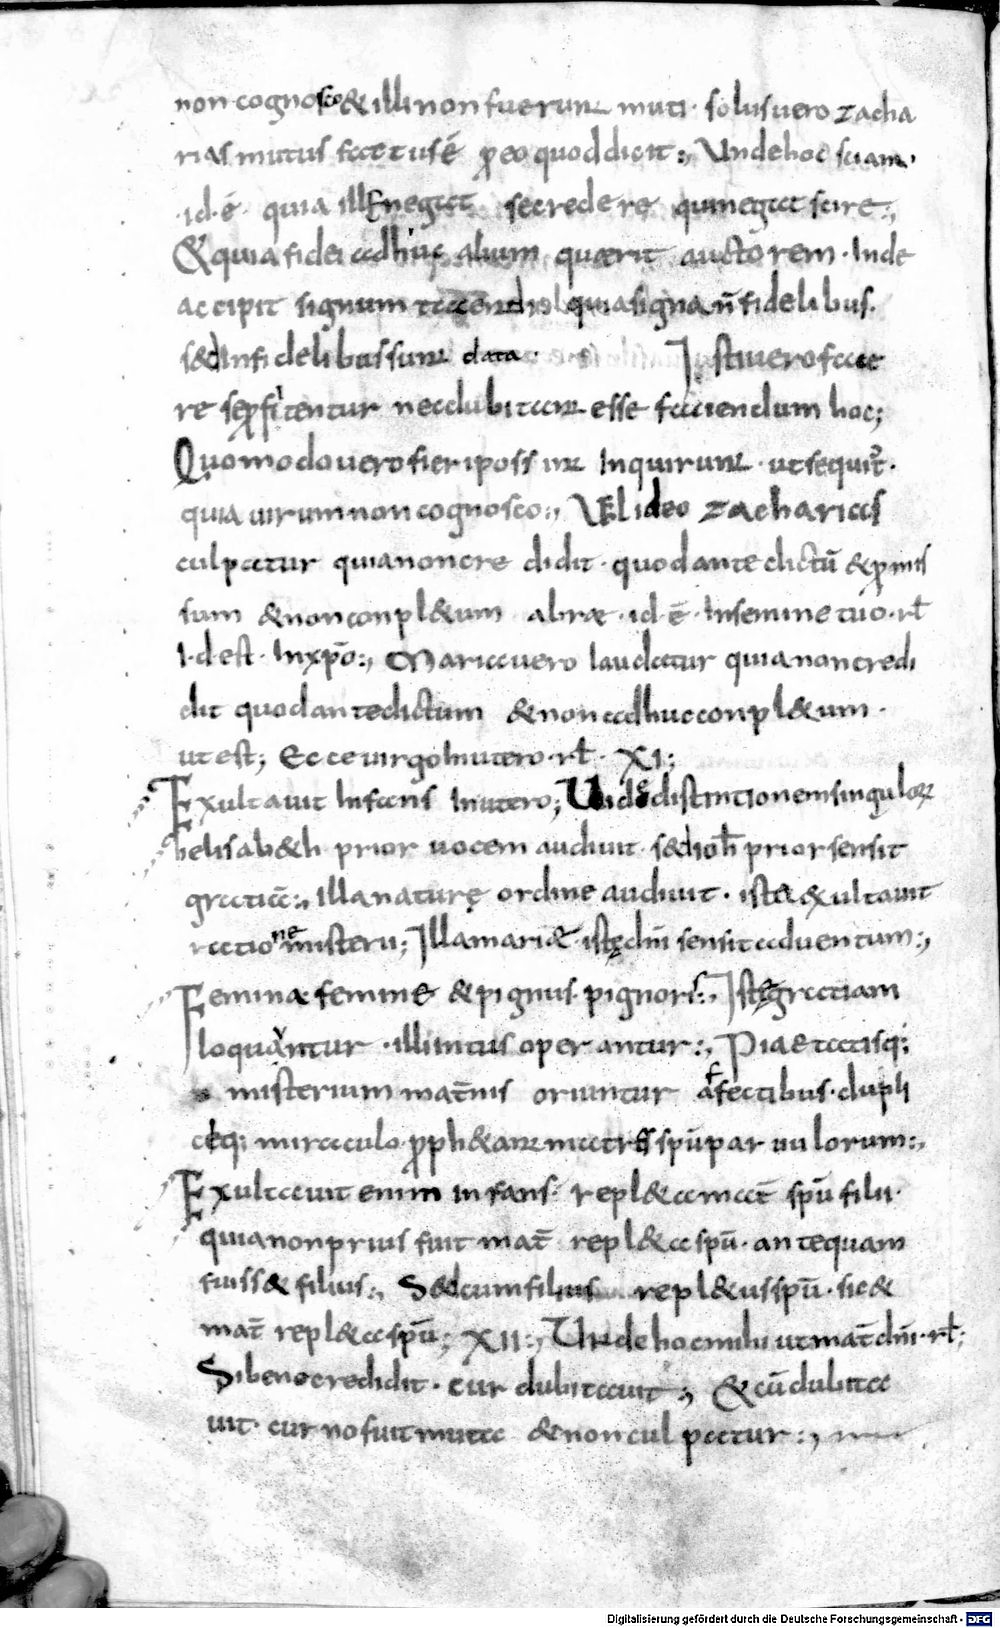 non cognosco & illi non fuerunt muti · solus uero zacha
rias mutus factus ē ꝓ eo quod dicit :, Unde hoc sciam ·
· id · ē · quia ille negat se credere qui negat scire :,
& quia fidei adhuc alium quærit auctorem · Inde
accipit signum tacendi quia signa n̄ fidelibus ·
sed Infidelibus sunt data · Ista uero face
re se ꝓfitentur nec dubitant esse faciendum hoc ;
Quomodo uero fieri possint Inquirunt · ut sequit̄ ·
quia uirum non cognosco :, Vel ideo zacharias
culpatur quia non credidit · quod ante dictū & ꝓmis
sum & non conpl&um abræ · id · ē · In semine tuo · rł
I · d est · In xp̄o :, Maria uero laudatur quia non credi
dit quod ante dictum & non adhuc conpl&um ·
ut est ; Ecce uirgo In utero · rł · XI ;
Exultauit Infans In utero ; Uide distintionem singulorum
helisab&h prior uocem audiuit · sed ioh̄ prior sensit
gratiā :, Illa naturę ordine audiuit · iste exultauit
ratione misterii ; Illa mariæ · istę dn̄i sensit aduentum :,
Feminæ femine & pignus pignoris :, Istę gratiam
loquantur · illi intus operantur :, Piaetatisq;
misterium mat̄nis oriuntur affectibus · dupli
ceq; miraculo ꝓph&ant matres spū paruulorum :,
Exultauit enim infans · repl&a mat̄ spū filii ·
quia non prius fuit mat̄ repl&a spū · antequam
fuiss& filius :, Sed cum filius repl&us spū · sic &
mat̄ repl&a spū ; XII :, Unde hoc mihi ut mat̄ dn̄i · rł ;
Si bene credidit · cur dubitauit :, & cū dubita
uit · cur no fuit muta & non culpatur :,
Digitalisierung gefördert durch die Deutsche Forschungsgemeinschaft · DFG